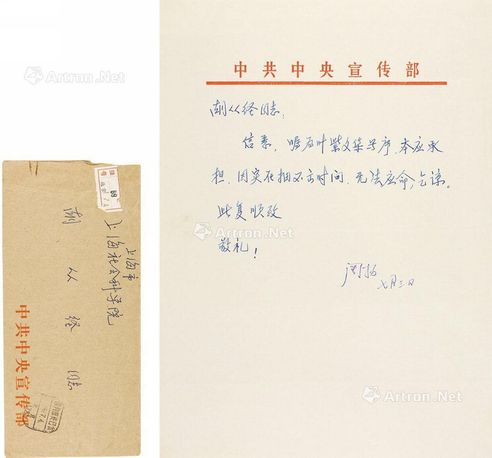 中共中央宣传部
从经同志：
信悉，嘱为叶紫文集写序，本应承
担，因实在抽不出时间，无法应命，乞谅。
此复顺致
敬礼！
七月三日
上海市
上海社会科学院
从经 同志
中共中央宣传部
Artron.Net
Artron.Net
Artron.Net
Artron.Net